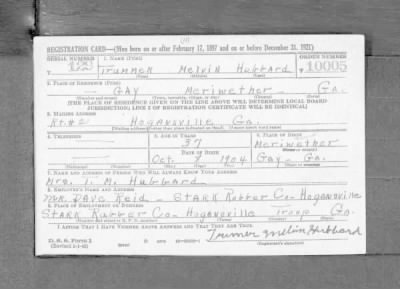 REGISTRATION CARD—(Men born on or after February 17, 1897 and on or before December 31, 1921)
SERIAL NUMBER 1. NAME (Print) ORDER NUMBER
Trummer Melvin Hubbard 10005
(First) (Middle) (Last)
2. PLACE OF RESIDENCE (Print)
— GAY Meriwether — Ga.
(Number and street) (Town, township, village, or city) (County) (State)
[THE PLACE OF RESIDENCE GIVEN ON THE LINE ABOVE WILL DETERMINE LOCAL BOARD
JURISDICTION; LINE 2 OF REGISTRATION CERTIFICATE WILL BE IDENTICAL]
3. MAILING ADDRESS
Rt. # 2 Hogansville Ga.
[Mailing address if other than place indicated on line 2. If same insert word same]
4. TELEPHONE 5. AGE IN YEARS 6. PLACE OF BIRTH
37 Meriwether
DATE OF BIRTH
Oct. 8 1904 Gay — Ga.
7. NAME AND ADDRESS OF PERSON WHO WILL ALWAYS KNOW YOUR ADDRESS
Mrs. T. M. Hubbard
8. EMPLOYER'S NAME AND ADDRESS
Mr. Dave Reid — Stark Rubber Co — Hogansville
9. PLACE OF EMPLOYMENT OR BUSINESS
Stark Rubber Co — Hogansville Troup Ga.
I AFFIRM THAT I HAVE VERIFIED ABOVE ANSWERS AND THAT THEY ARE TRUE.
D. S. S. Form 1
Trumer Melvin Hubbard
(Registrant's signature)